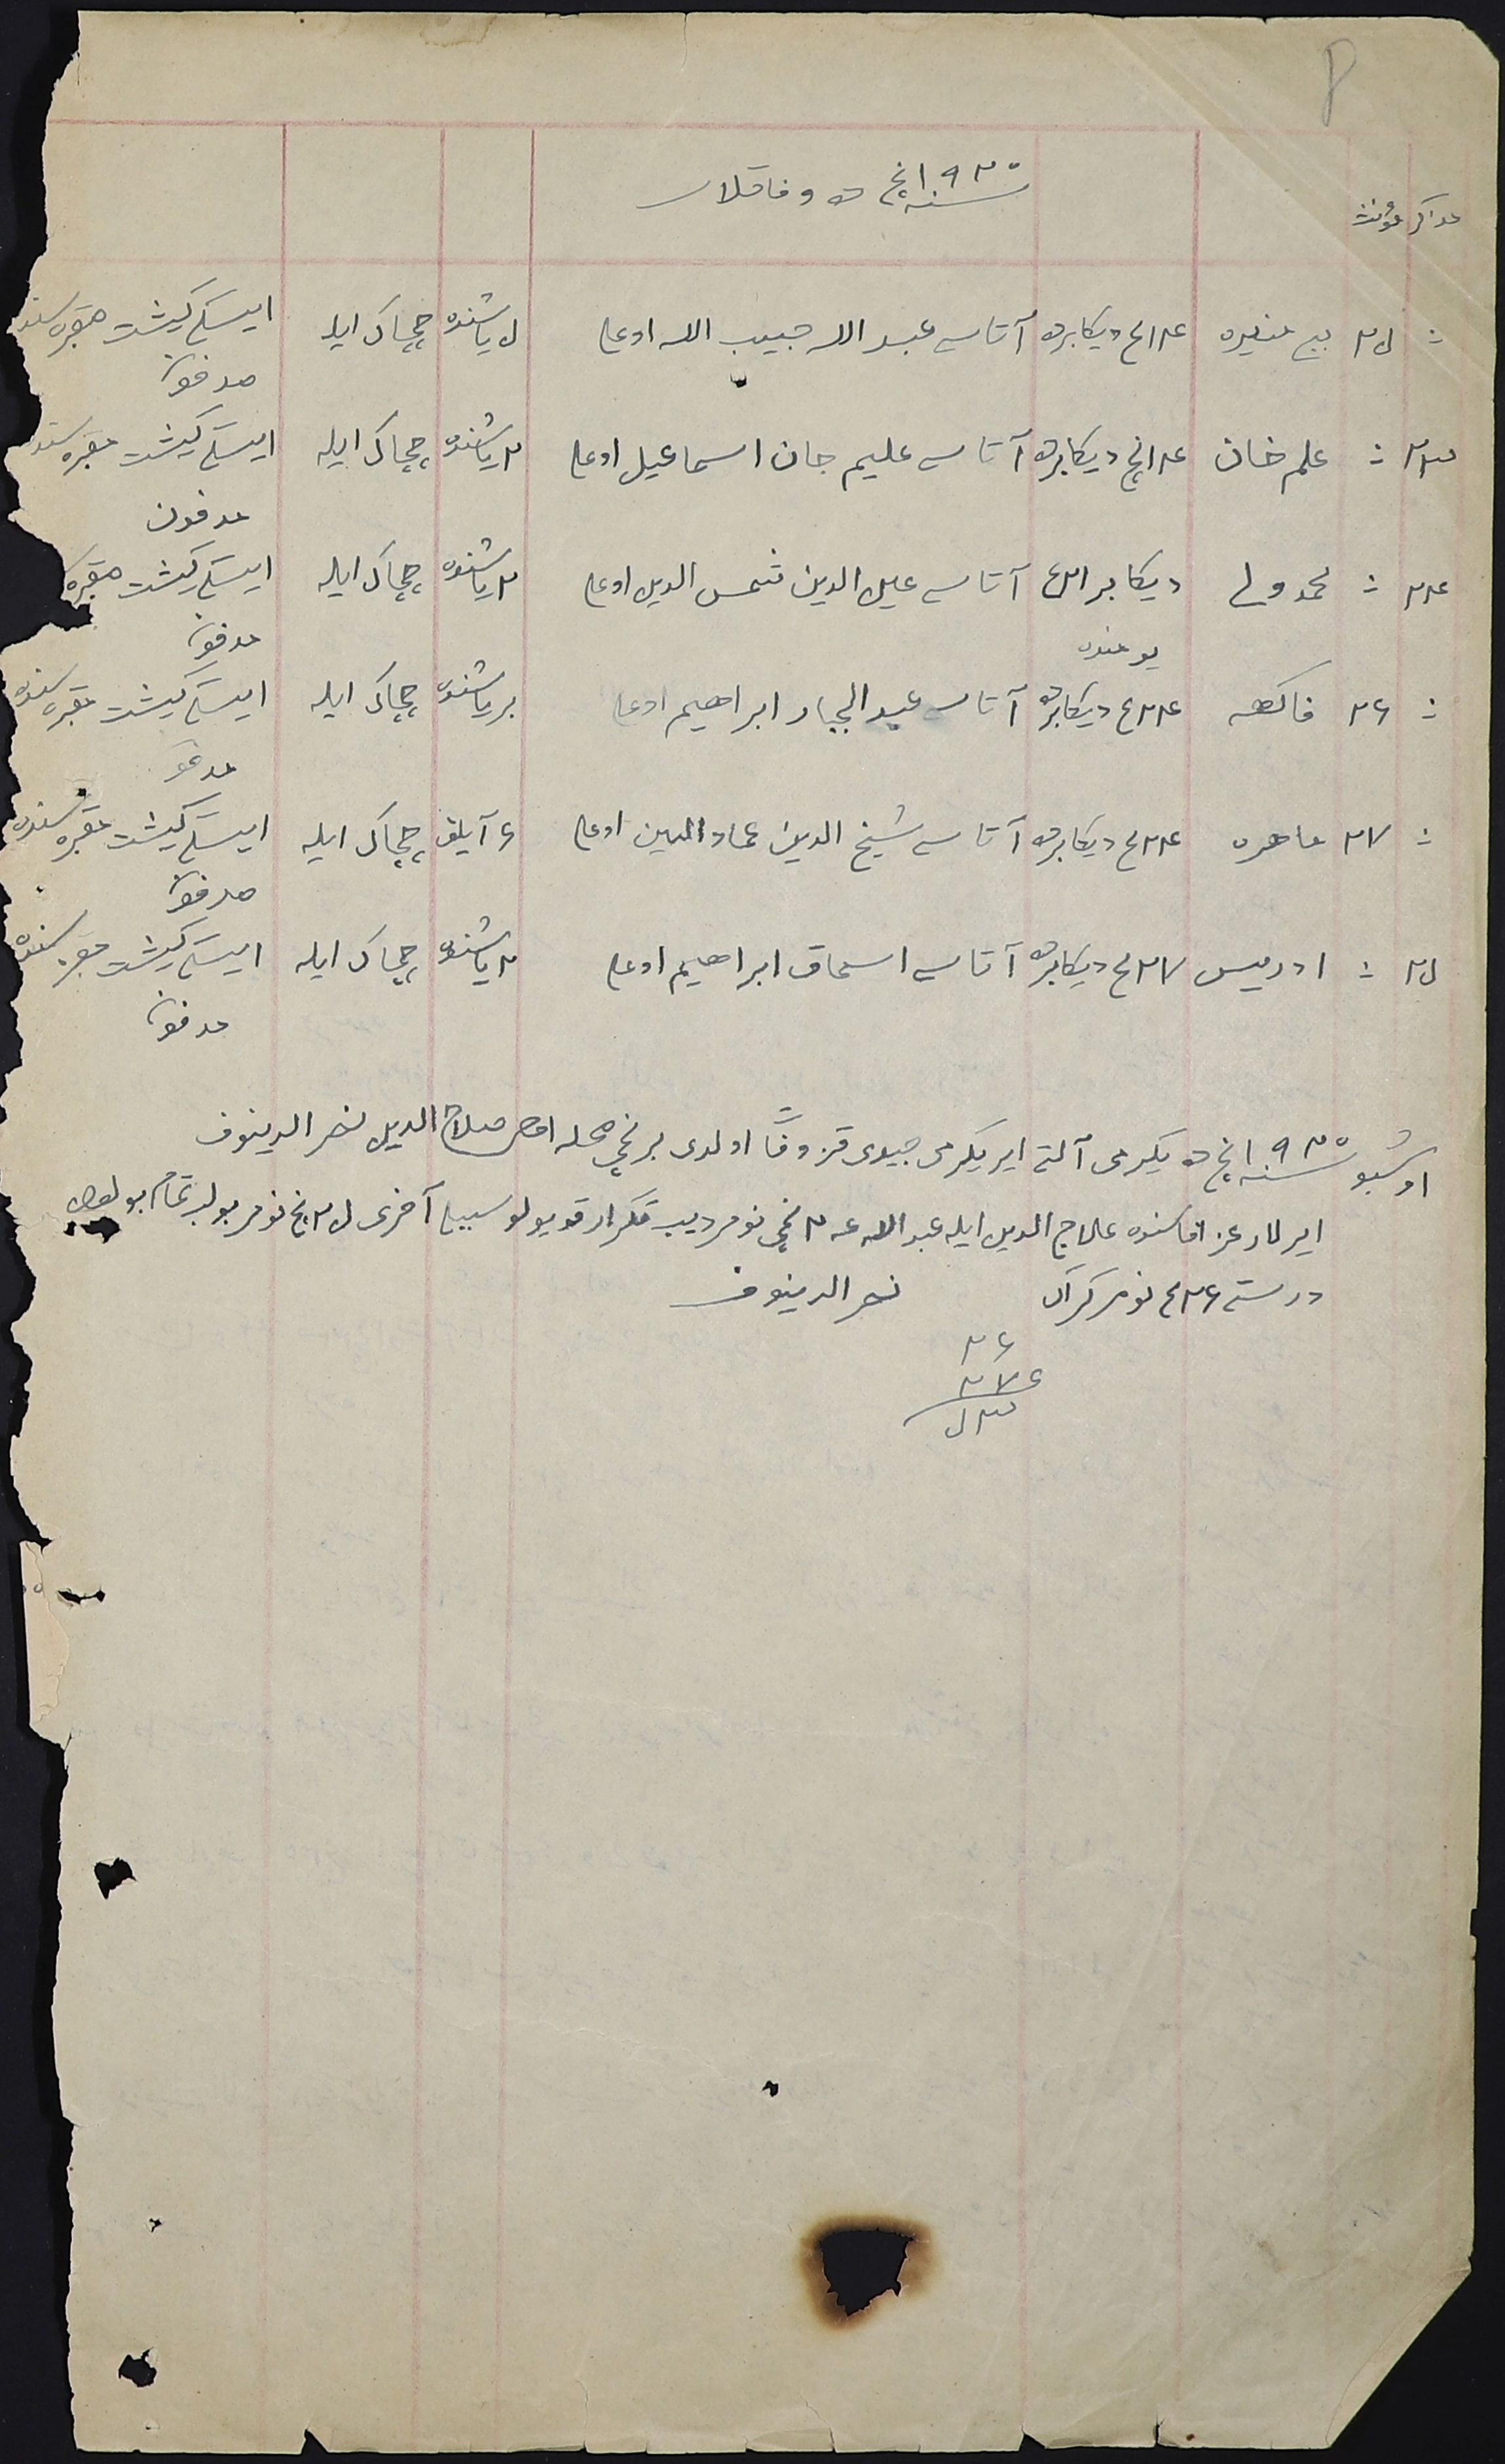 سنه ۱۹۳۰ نچی ده وفاتلار
مذاکر مؤنث
: ۲۵ بی منیره ۱۴ نچی دیکابرده آتاسی عبد الله حبیب الله اوغلی ۵ یاشنده چچاک ایله ایسکی کیشت مقبره سنده
مدفونه
۲۳ : علم خان ۱۴ نچی دیکابرده آتاسی علیم جان اسماعیل اوغلی ۲ یاشنده چچاک ایله ایسکی کیشت مقبره سنده
مدفون
۲۴ : محمد ولی دیکابر آتاسی شمس الدین اوغلی ۲ یاشنده چچاک ایله ایسکی کیشت مقبره
مدفون
: ۲۶ فاکهه ۲۴ دیکابرده آتاسی عبد الجبار ابراهیم اوغلی بر یاشنده چچاک ایله ایسکی کیشت مقبره سنده
: ۲۷ ماهره ۲۴ نچی دیکابرده آتاسی شیخ الدین عماد الدین اوغلی ۶ آیلق چچاک ایله ایسکی کیشت مقبره سنده
مدفونه
۲۵ : ادریس ۲۷ نچی دیکابرده آتاسی اسحاق ابراهیم اوغلی ۲ یاشنده چچاک ایله ایسکی کیشت مقبره سنده
مدفون
اوشبو سنه ۱۹۳۰ نچی ده یکرمی آلتی ایر یکرمی جیدی قز وفات اولدی برنچی محله امام صلاح الدین نصر الدینوف
ایرلار علاج الدین ایله عبد الله نچی نومر دیب تکرار قویولو سببلی آخری ۲۵ نچی نومر بولیر تمام بولغان
درستی ۲۶ نچی نومر کراک نصر الدینوف
۲۶
۲۷
۵۳